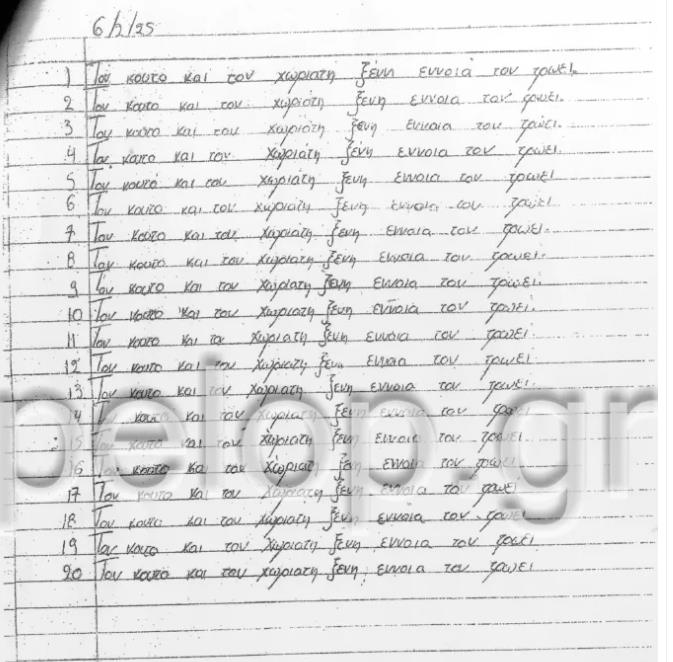 6/2/25
1 Τον κουτο και τον χωριατη ξένη εννοιά τον τρωει.
2 Τον κουτο και τον χωριάτη ξενη εννοια τον τρωει.
3 Τον κουτο και τον χωριάτη ξένη εννοια τον τρώει.
4 Τον κουτο και τον χωριάτη ξένη εννοια τον τρωει.
5 Τον κουτό και τον χωριάτη ξενη εννοια τον τρωει.
6 Τον κουτο και τον χωριάτη ξενη εννοια τον τρωει.
7 Τον κουτο και τον χωριάτη ξενη εννοια τον τρωει.
8 Τον κουτο και τον χωριατη ξενη εννοια τον τρωει.
9 Τον κουτο και τον χωριατη ξενη εννοια τον τρωει.
10 Τον κουτο και τον χωριατη ξενη εννοια τον τρωει.
11 Τον κουτο και το χωριατη ξενη εννοια τον τρωει.
12 Τον κουτο και τον χωριατη ξενη εννοια τον τρωει
13 Τον κουτο και τον χωριατη ξενη εννοια τον τρωει.
14 Τον κουτο και τον χωριατη ξενη εννοια τον τρωει
15 Τον κουτο και τον χωριατη ξενη εννοια τον τρωει.
16 Τον κουτο και τον χωριατη ξενη εννοια τον τρωει
17 Τον κουτο και τον χωριατη ξενη εννοια τον τρωει
18 Τον κουτο και τον χωριατη ξενη εννοια τον τρωει
19 Τον κουτο και τον χωριατη ξενη εννοια τον τρωει
20 Τον κουτο και τον χωριατη ξενη εννοια τον τρωει
pelop.gr